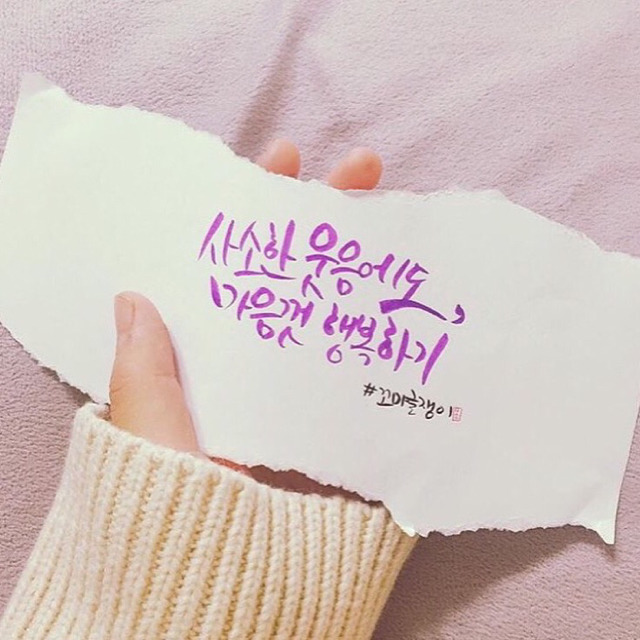 사소한 웃음에도,
마음껏 행복하기
#꼬미글쟁이